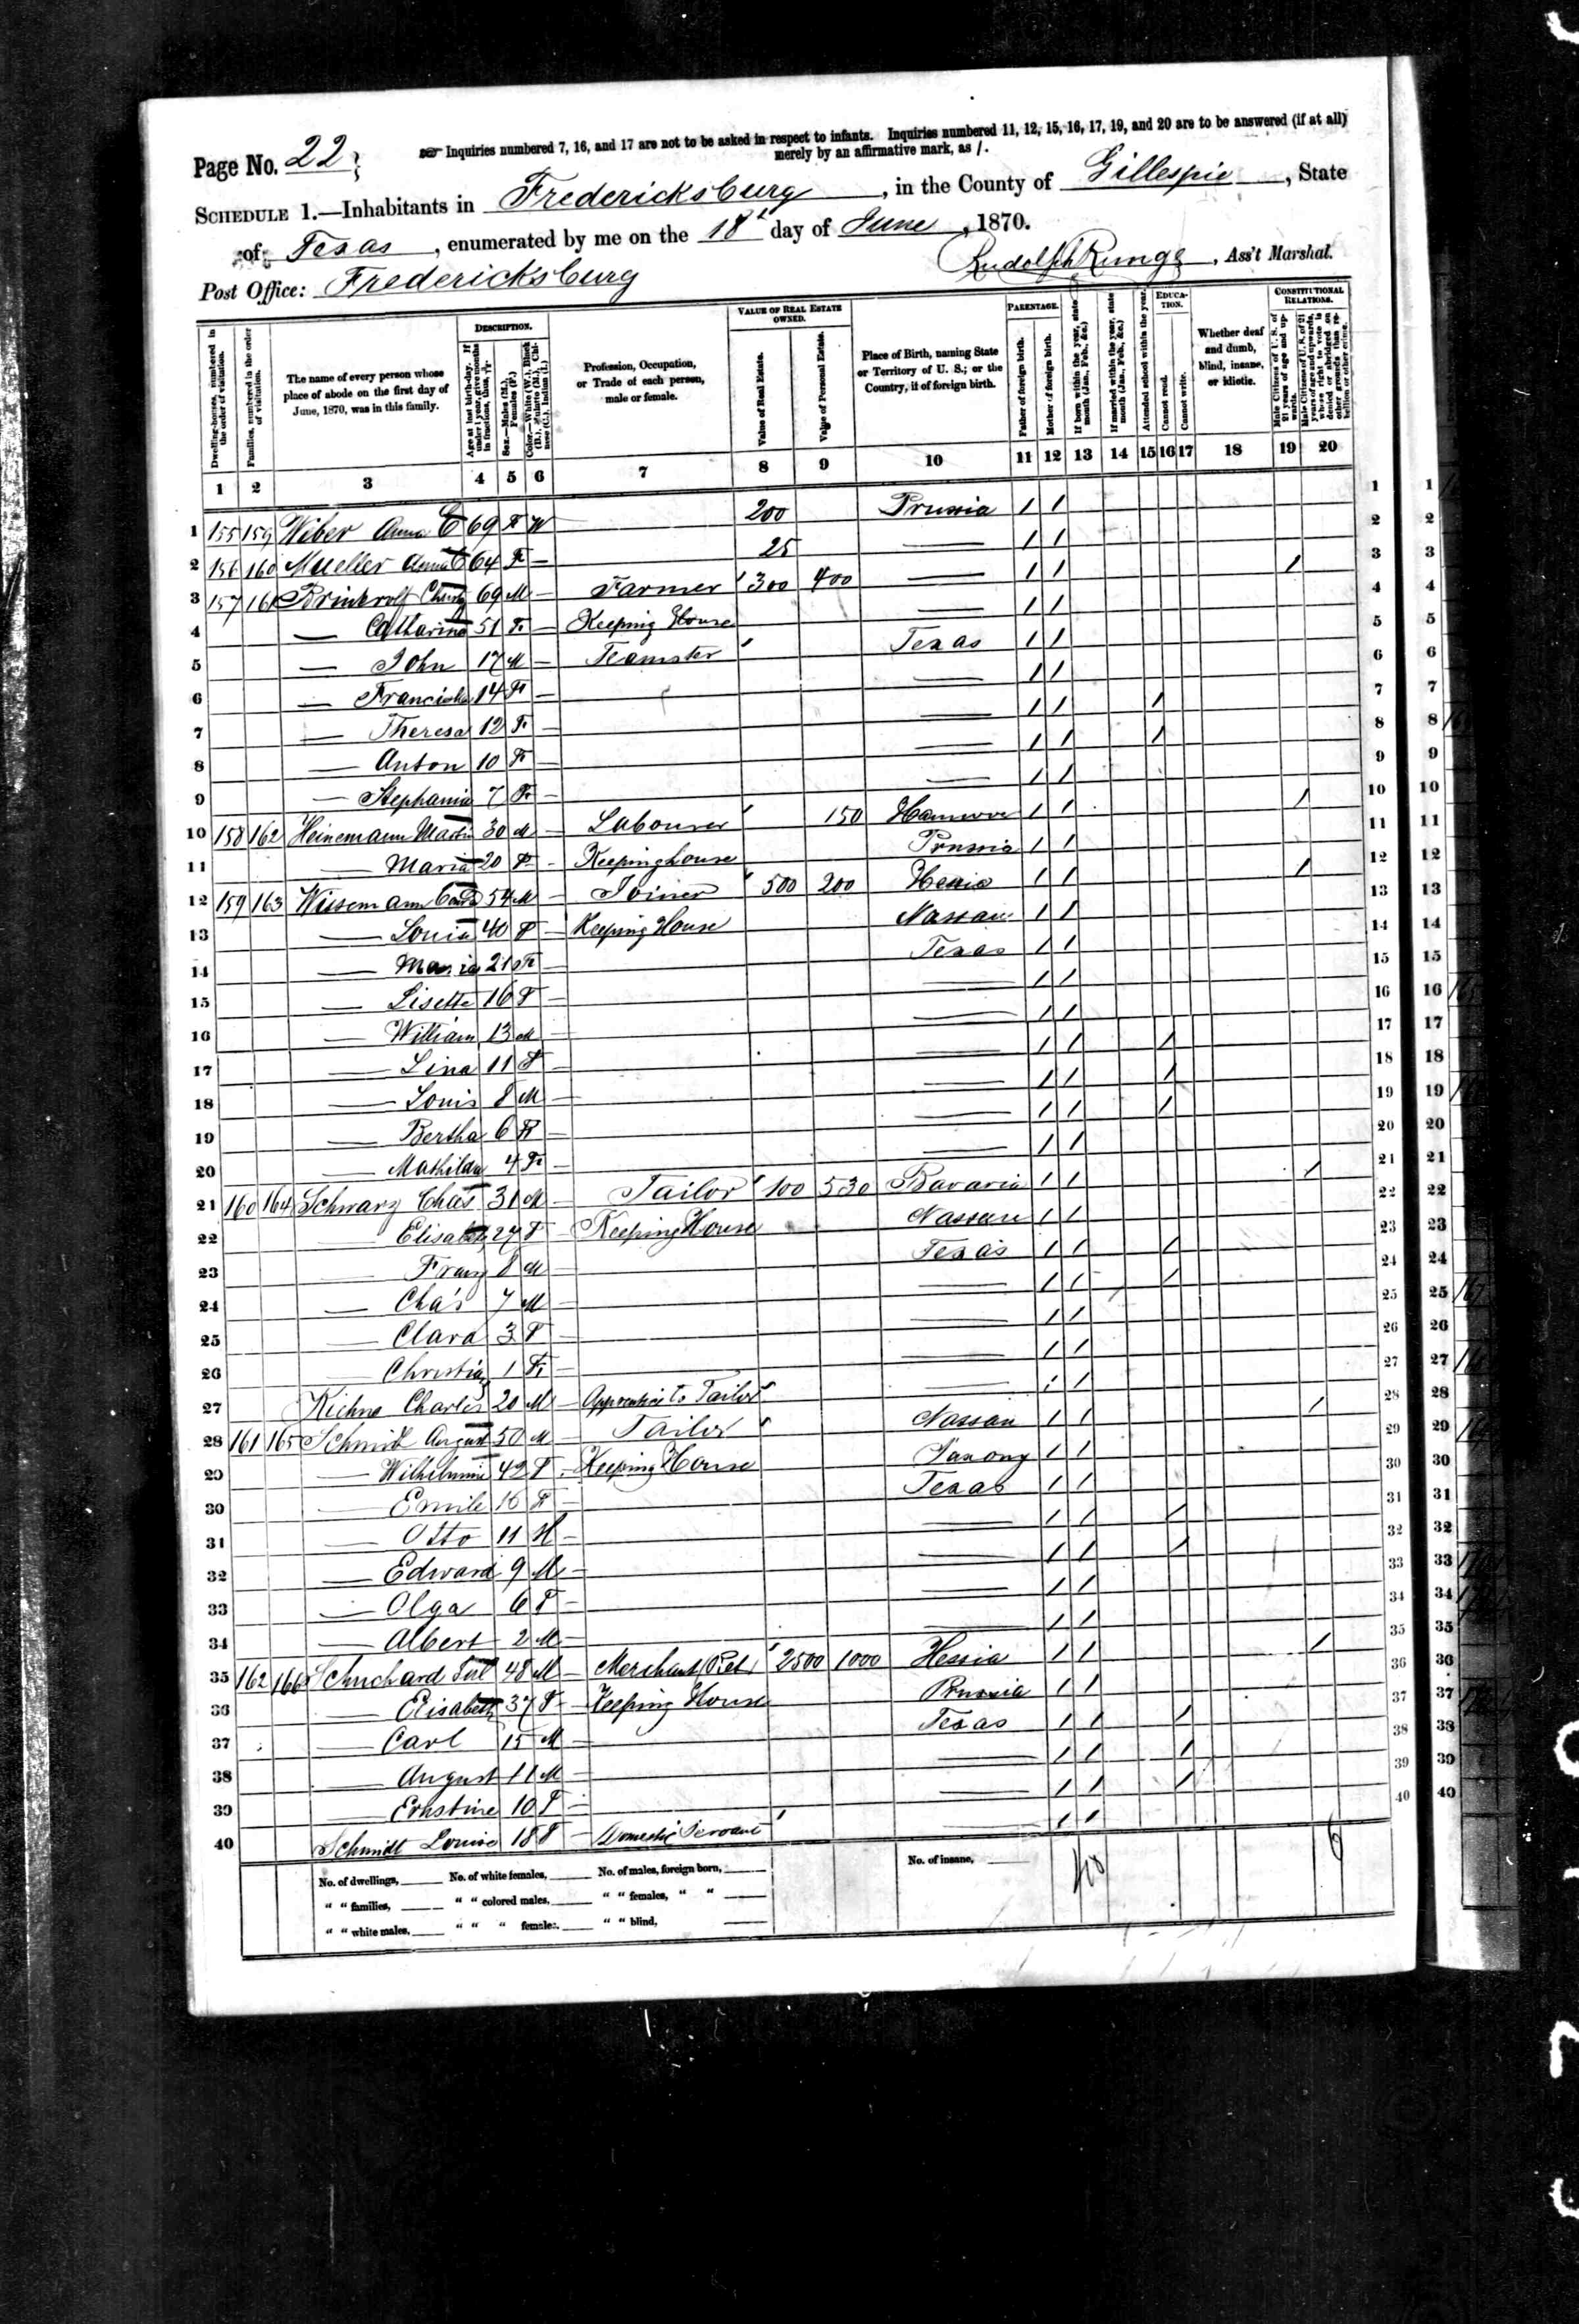 Page No. 22
Inquiries numbered 7, 16, and 17 are not to be asked in respect to infants. Inquiries numbered 11, 12, 15, 16, 17, 19, and 20 are to be answered (if at all)
merely by an affirmative mark, as /.
SCHEDULE 1.—Inhabitants in Fredericksburg, in the County of Gillespie, State
of Texas, enumerated by me on the 18t day of June, 1870.
Post Office: Fredericksburg Rudolph Runge, Ass't Marshal.
Dwelling-houses, numbered in the order of visitation.
Families, numbered in the order of visitation.
The name of every person whose place of abode on the first day of June, 1870, was in this family.
DESCRIPTION.
Age at last birth-day. If under 1 year, give months in fractions, thus, 3/12
Sex.—Males (M.), Females (F.)
Color.—White (W.), Black (B.), Mulatto (M.), Chinese (C.), Indian (I.)
Profession, Occupation, or Trade of each person, male or female.
VALUE OF REAL ESTATE OWNED.
Value of Real Estate.
Value of Personal Estate.
Place of Birth, naming State or Territory of U. S.; or the Country, if of foreign birth.
PARENTAGE.
Father of foreign birth.
Mother of foreign birth.
If born within the year, state month (Jan., Feb., &c.)
If married within the year, state month (Jan., Feb., &c.)
EDUCATION.
Attended school within the year.
Cannot read.
Cannot write.
Whether deaf and dumb, blind, insane, or idiotic.
CONSTITUTIONAL RELATIONS.
Male Citizens of U. S. of 21 years of age and upwards.
Male Citizens of U. S. of 21 years of age and upwards, whose right to vote is denied or abridged on other grounds than rebellion or other crime.
1 2 3 4 5 6 7 8 9 10 11 12 13 14 15 16 17 18 19 20
1 155 159 Wiber Anna E 69 F W 200 Prussia / / 1
2 156 160 Mueller Anna 64 F — 25 — / / 2
3 157 161 69 M — Farmer 300 400 — / / / 3
4 — Catharine 51 F — Keeping House — / / 4
5 — John 17 M — Teamster Texas / / 5
6 — Franciska 14 F — — / / 6
7 — Theresa 12 F — — / / / 7
8 — Anton 10 F — — / / / 8
9 — Stephania 7 F — — / / 9
10 158 162 Heinemann Martin 30 M — Labourer 150 Hannover / / / 10
11 — Maria 20 F — Keeping house Prussia / / 11
12 159 163 Wissemann 54 M — Joiner 500 200 Hessia / / / 12
13 — Louis 40 F — Keeping House Nassau / / 13
14 — Maria 21 F — Texas / / 14
15 — Lisette 16 F — — / / 15
16 — William 13 M — — / / 16
17 — Lina 11 F — — / / / 17
18 — Louis 8 M — — / / / 18
19 — Bertha 6 F — — / / / 19
20 — Mathilda 4 F — — / / 20
21 160 164 Schwarz Chas 31 M — Tailor 100 530 Bavaria / / / 21
22 — Elisabeth 27 F — Keeping House Nassau / / 22
23 — Franz 8 M — Texas / / / 23
24 — Cha's 7 M — — / / / 24
25 — Clara 3 F — — / / 25
26 — Christia 1 F — — / / 26
27 Kiehne Charles 20 M — Apprentice to Tailor — / / 27
28 161 165 Schmidt August 50 M — Tailor Nassau / / / 28
29 — Wilhelmine 42 F — Keeping House Saxony / / 29
30 — Emile 16 F — Texas / / 30
31 — Otto 11 M — — / / / 31
32 — Edward 9 M — — / / / 32
33 — Olga 6 F — — / / 33
34 — Albert 2 M — — / / 34
35 162 166 Schuchard 48 M — Merchant Ret. 2500 1000 Hessia / / / 35
36 — Elisabeth 37 F — Keeping House Prussia / / 36
37 — Carl 15 M — Texas / / / 37
38 — August 11 M — — / / / 38
39 — Ernstine 10 F — — / / / 39
40 Schmidt Louise 18 F — Domestic Servant — / / 40
No. of dwellings, No. of white females, No. of males, foreign born, No. of insane, 40 6
" " families, " " colored males, " " females, " "
" " white males, " " " females, " " blind,